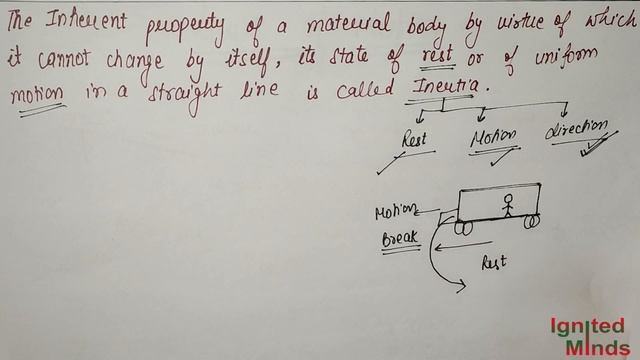 The Inherent property of a material body by virtue of which
it cannot change by itself, its state of rest or of uniform
motion in a straight line is called Inertia.
Rest Motion direction
Motion
Break
Rest
Ignited
Minds